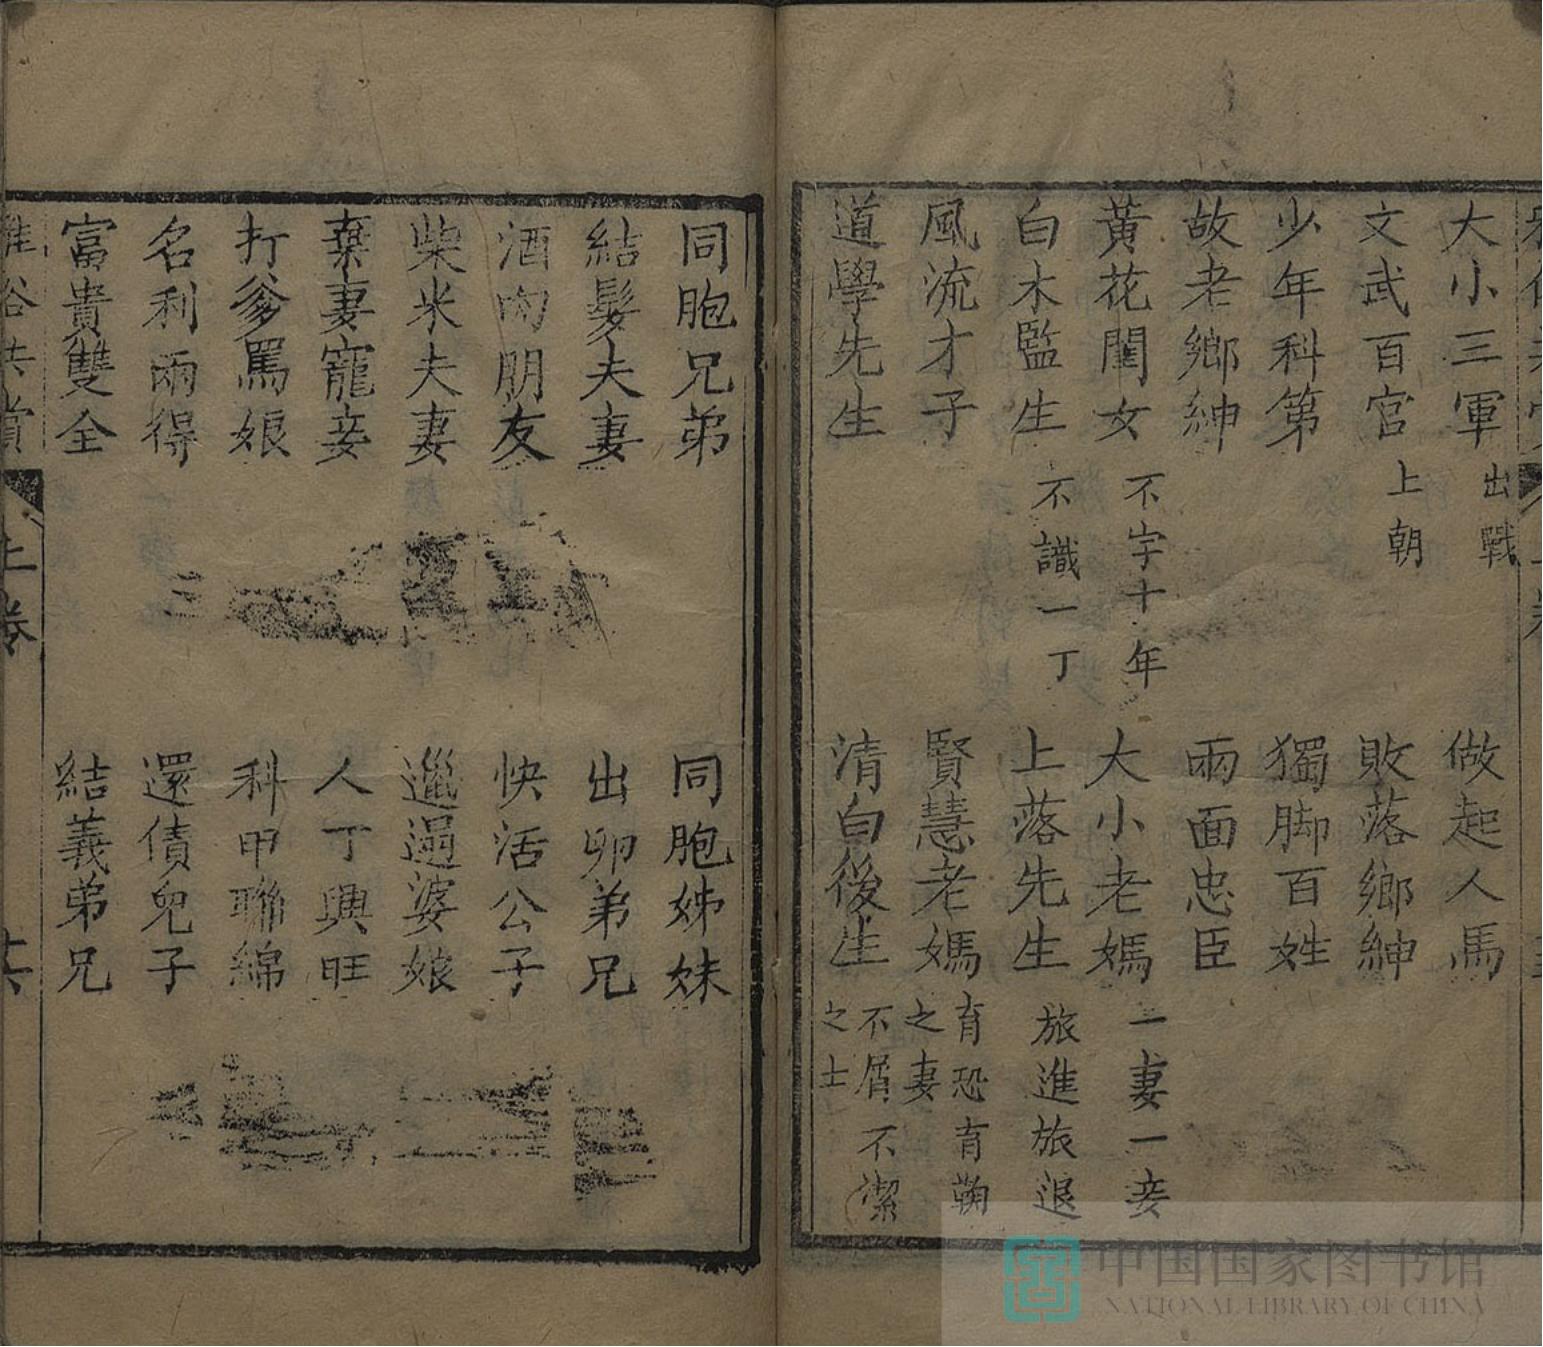 大小三軍 出戰 做起人馬
文武百官 上朝 敗落鄉紳
少年科第 獨脚百姓
故老鄉紳 兩面忠臣
黃花閨女 不字十年 大小老媽 一妻一妾
白木監生 不識一丁 上落先生 旅進旅退
風流才子 賢慧老媽 育恐育鞠之妻
道學先生 清白後生 不屑不潔之士
同胞兄弟 同胞姊妹
結髮夫妻 出卵弟兄
酒肉朋友 快活公子
柴米夫妻 邋遢婆娘
棄妻寵妾 人丁興旺
打爹罵娘 科甲聯綿
名利兩得 還債兒子
富貴雙全 結義弟兄
雅俗共賞 上卷
中国国家图书馆
NATIONAL LIBRARY OF CHINA